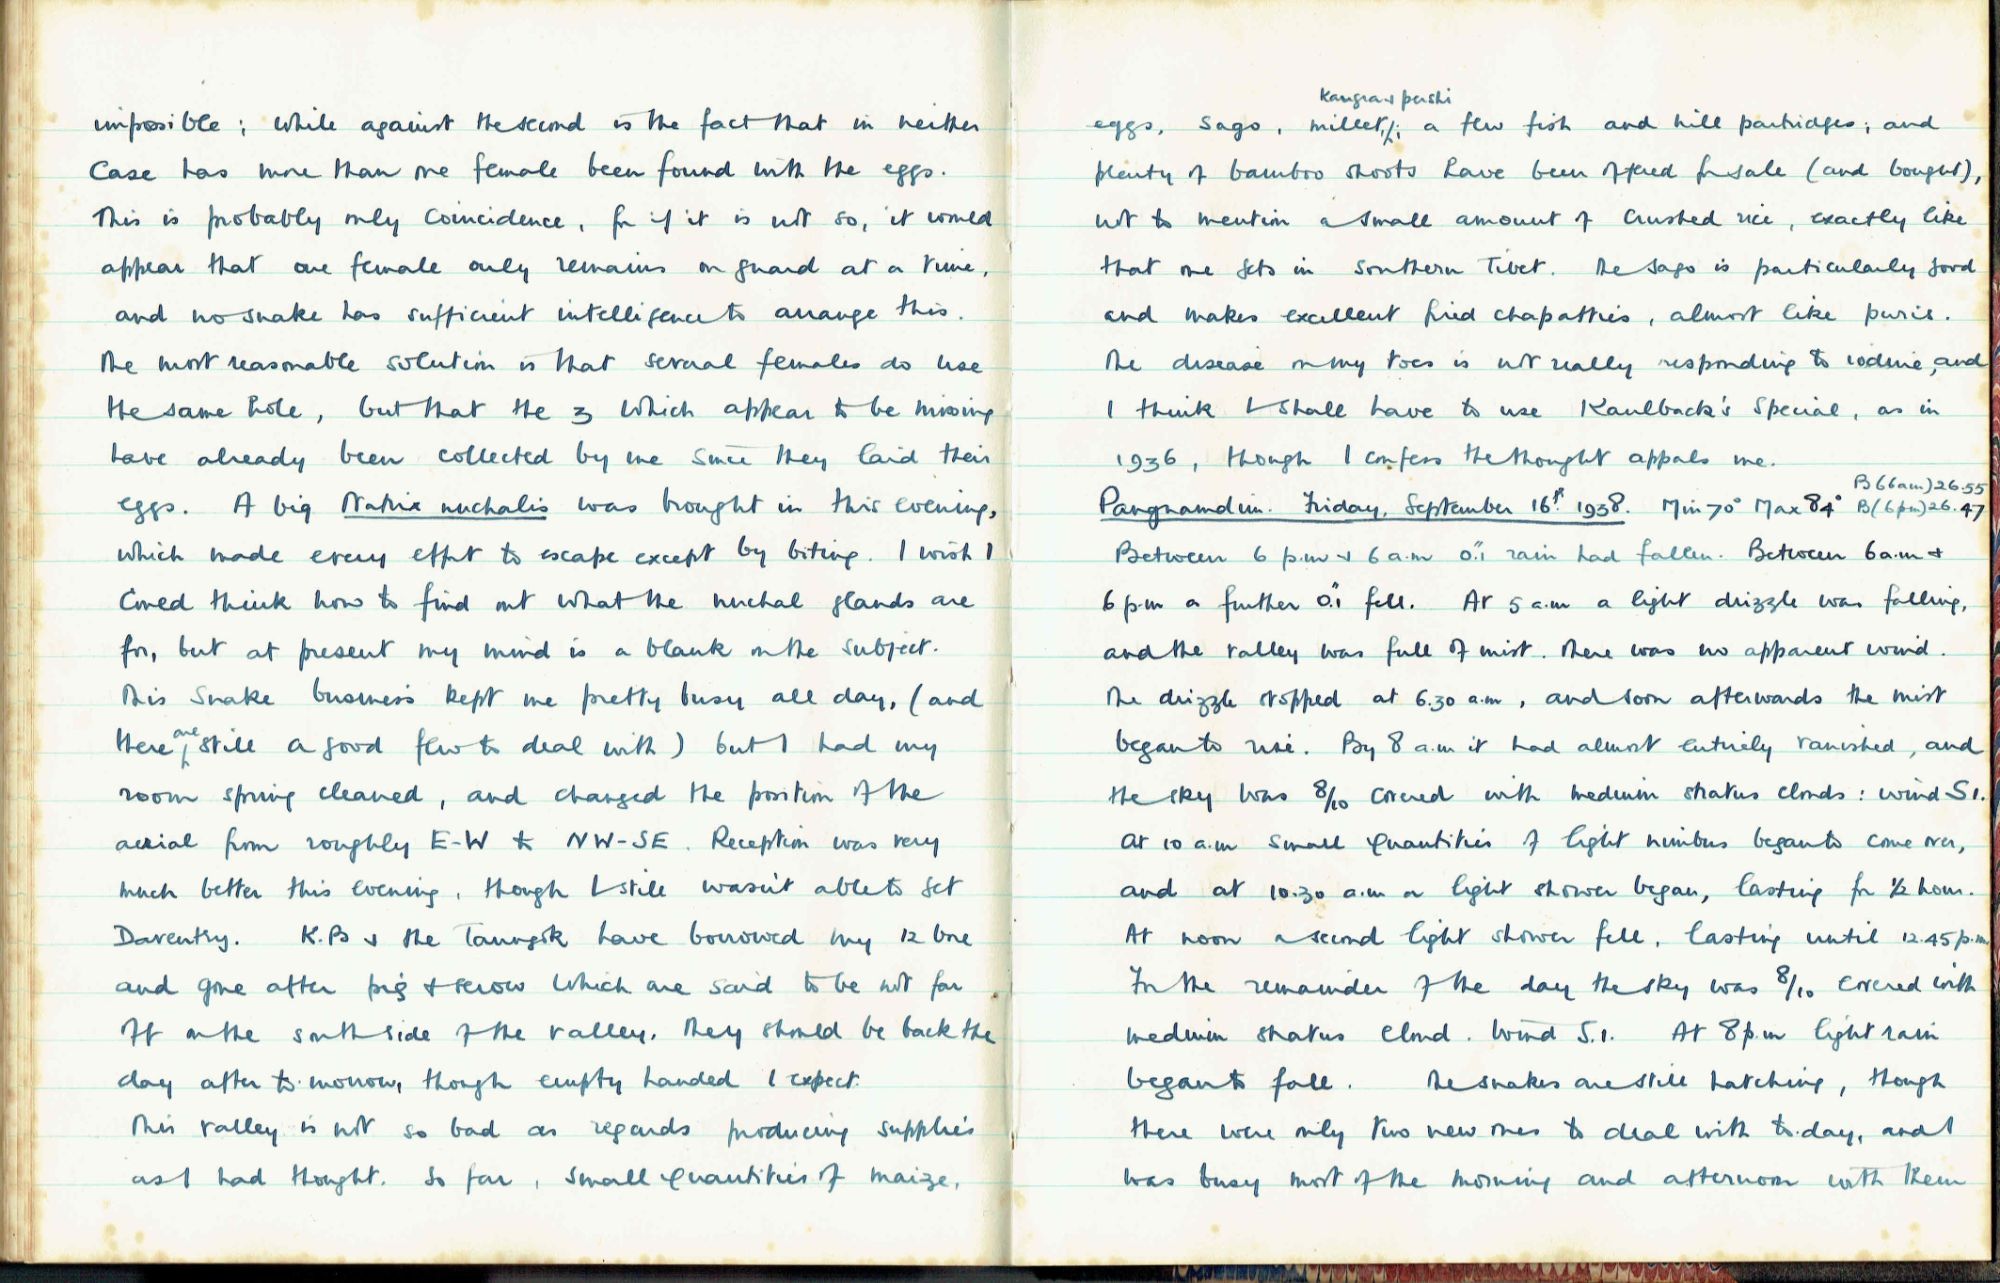 impossible; while against the second is the fact that in neither
case has more than one female been found with the eggs.
This is probably only coincidence, for if it is not so, it would
appear that one female only remains on guard at a time,
and no snake has sufficient intelligence to arrange this.
The most reasonable solution is that several females do use
the same hole, but that the 3 which appear to be missing
have already been collected by me since they laid their
eggs. A big Natrix nuchalis was brought in this evening,
which made every effort to escape except by biting. I wish I
could think how to find out what the nuchal glands are
for, but at present my mind is a blank on the subject.
This snake business kept me pretty busy all day, (and
there are still a good few to deal with) but I had my
room spring cleaned, and changed the position of the
aerial from roughly E-W to NW-SE. Reception was very
much better this evening, though I still wasn't able to get
Daventry. K.B & the Taungok have borrowed my 12 bore
and gone after pig & serow which are said to be not far
off on the south side of the valley. They should be back the
day after to-morrow, though empty handed I expect.
This valley is not so bad as regards producing supplies
as I had thought. So far, small quantities of maize,
eggs, sago, millet, Kangra & pushi; a few fish and hill partridges; and
plenty of bamboo shoots have been offered for sale (and bought),
not to mention a small amount of crushed rice, exactly like
that one gets in southern Tibet. The sago is particularly good
and makes excellent fried chapatties, almost like puris.
The disease on my toes is not really responding to iodine, and
I think I shall have to use Kaulback's Special, as in
1936, though I confess the thought appals me.
Pangnamdim. Friday, September 16th 1938. Min 70° Max 84° B(6am)26.55 B(6pm)26.47
Between 6 p.m & 6 a.m 0."1 rain had fallen. Between 6 a.m &
6 p.m a further 0."1 fell. At 5 a.m a light drizzle was falling,
and the valley was full of mist. There was no apparent wind.
The drizzle stopped at 6.30 a.m, and soon afterwards the mist
began to rise. By 8 a.m it had almost entirely vanished, and
the sky was 8/10 covered with medium stratus clouds: wind S1.
At 10 a.m small quantities of light nimbus began to come over,
and at 10.30 a.m a light shower began, lasting for 1/2 hour.
At noon a second light shower fell, lasting until 12.45 p.m.
For the remainder of the day the sky was 8/10 covered with
medium stratus cloud. Wind S.1. At 8 p.m light rain
began to fall. The snakes are still hatching, though
there were only two new ones to deal with to-day, and I
was busy most of the morning and afternoon with them